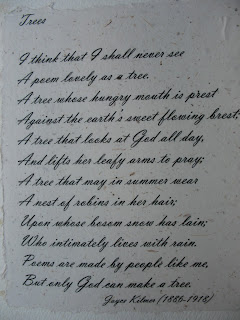 Trees
I think that I shall never see
A poem lovely as a tree.
A tree whose hungry mouth is prest
Against the earth's sweet flowing brest;
A tree that looks at God all day,
And lifts her leafy arms to pray;
A tree that may in summer wear
A nest of robins in her hair;
Upon whose bosom snow has lain;
Who intimately lives with rain.
Poems are made by people like me,
But only God can make a tree.
Joyce Kilmer (1886-1918)